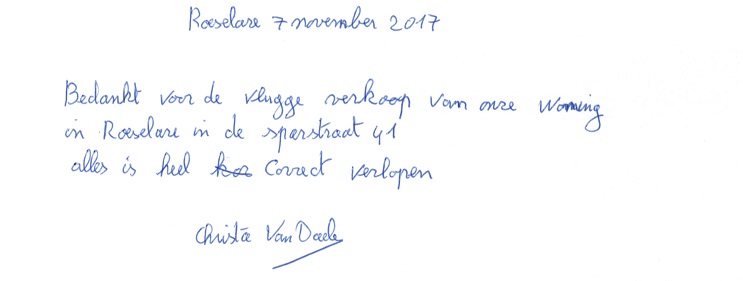 Roeselare 7 november 2017
Bedankt voor de vlugge verkoop van onze woning
in Roeselare in de sparstraat 41
alles is heel correct verlopen
Christa Van Daele